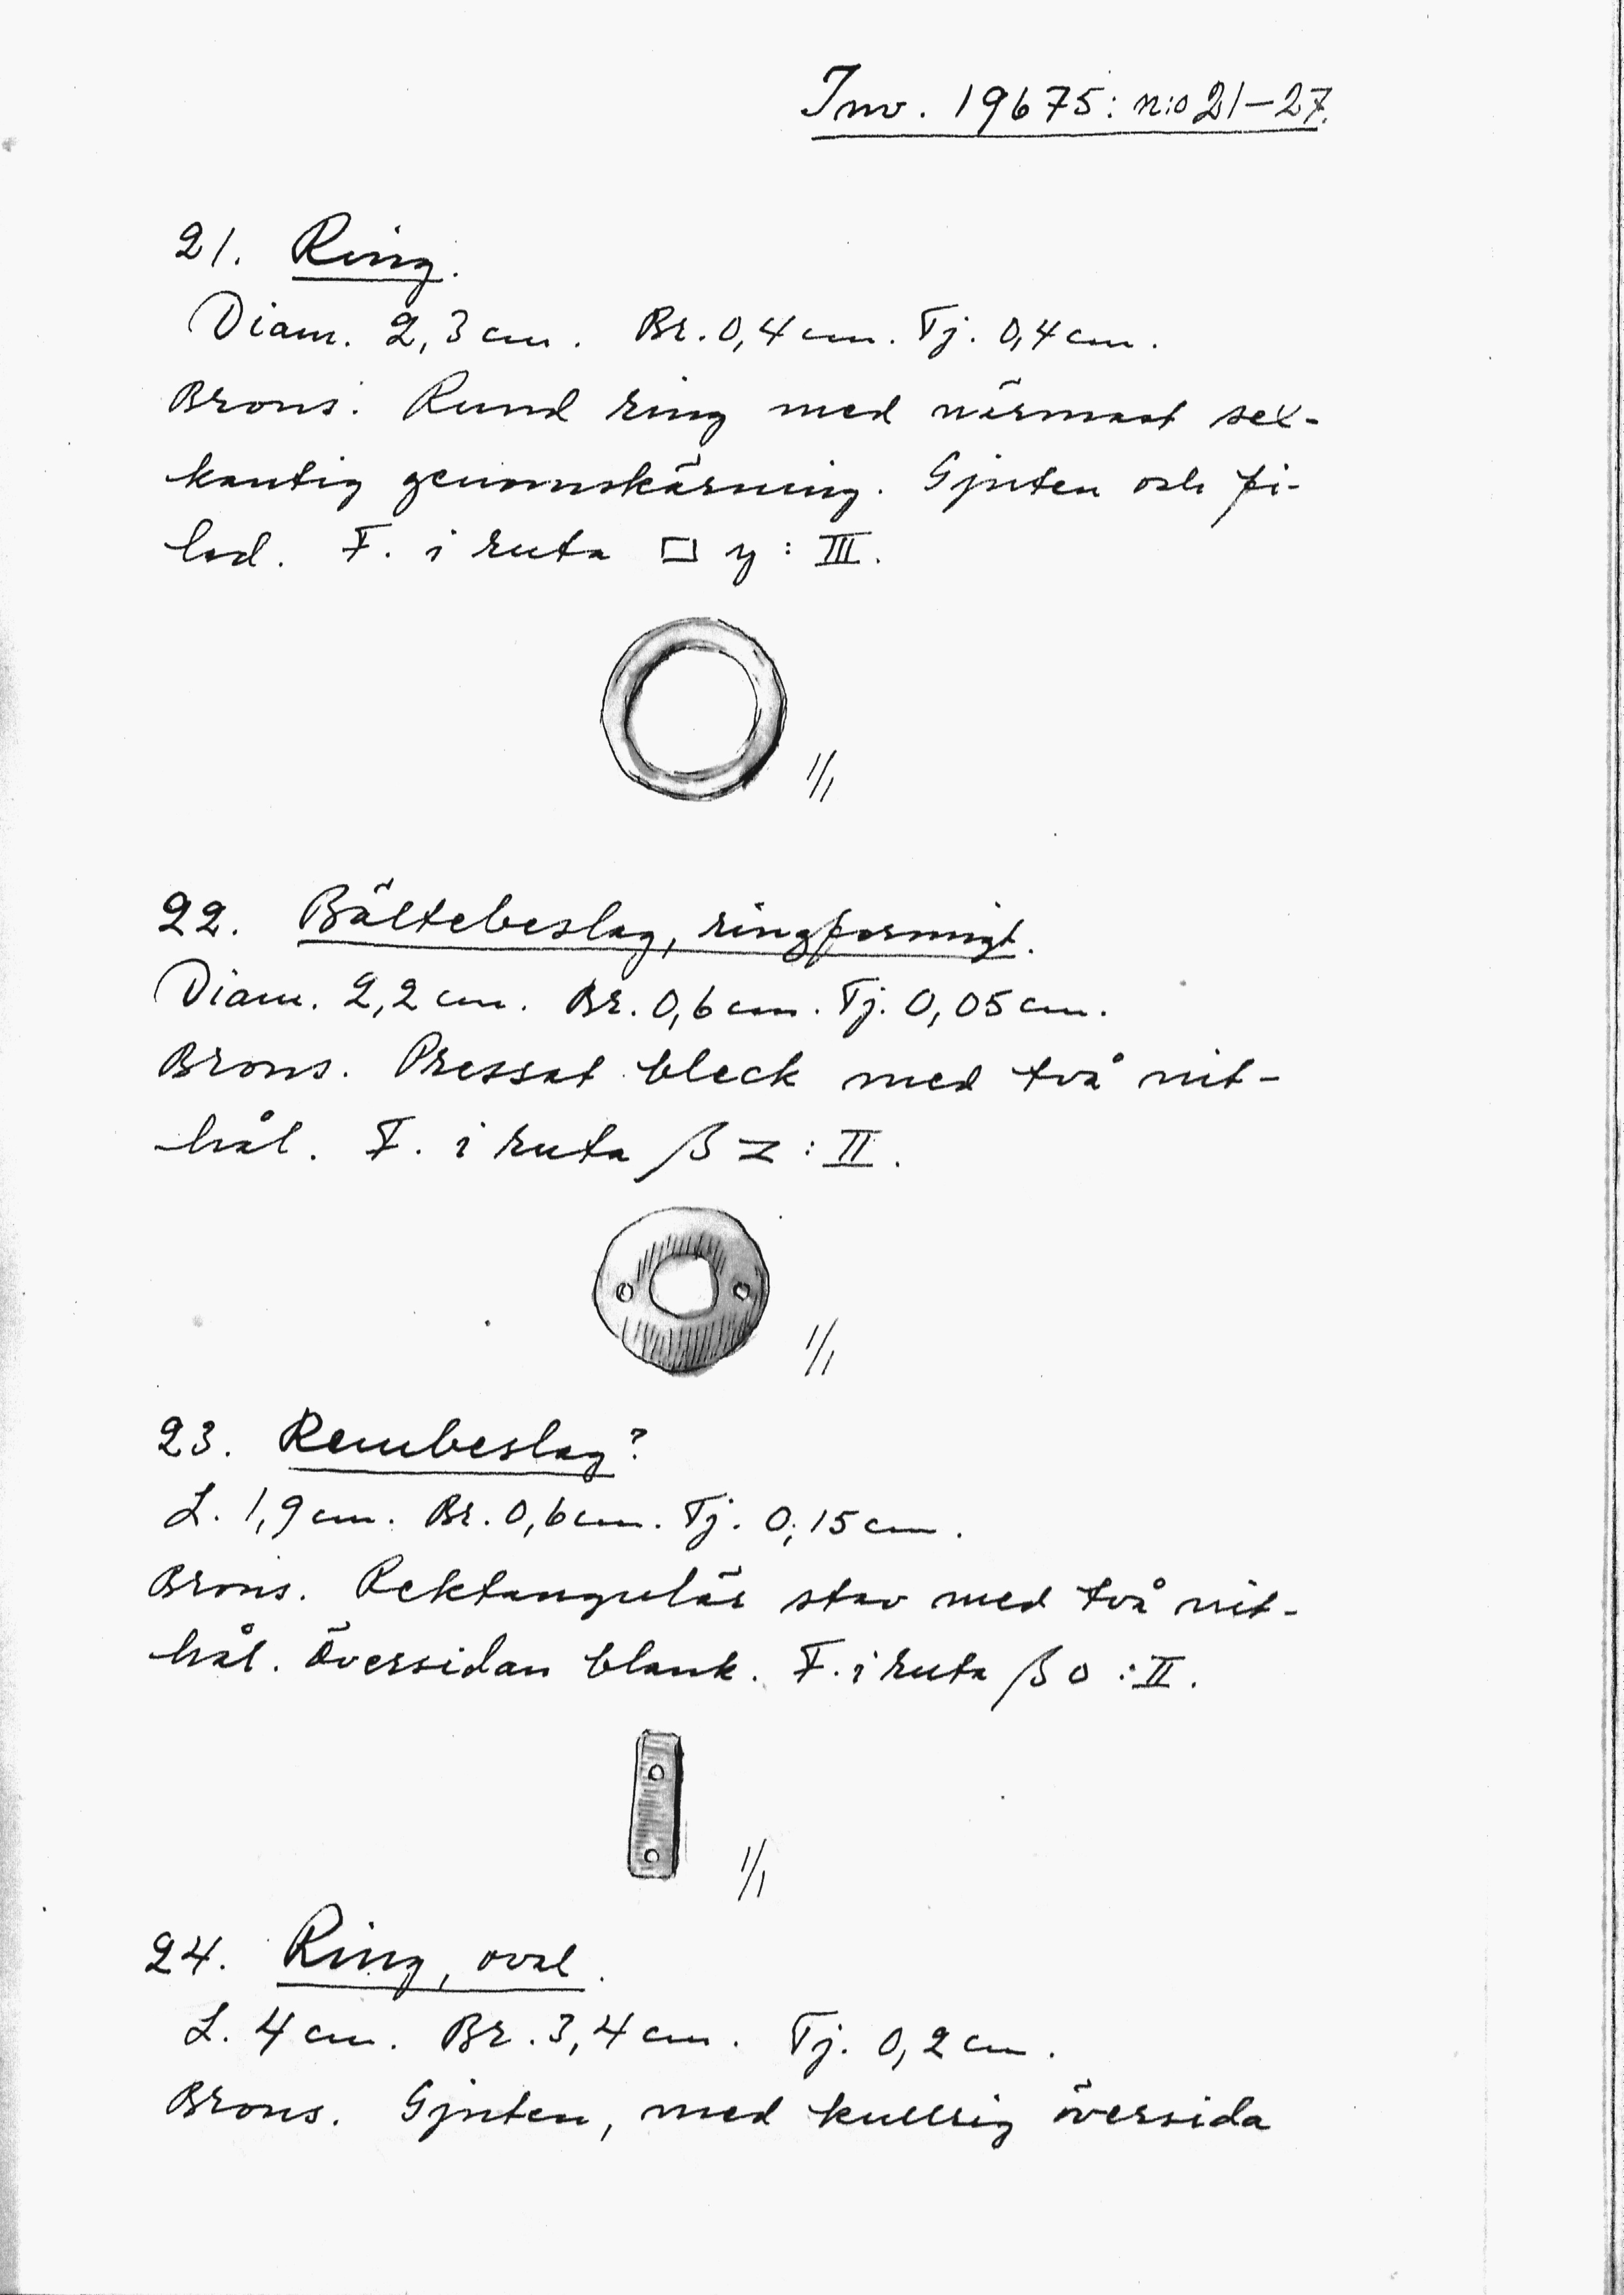 Inv. 19675: n:o 21–27.
21. Ring.
Diam. 2,3 cm. Br. 0,4 cm. Tj. 0,4 cm.
Brons. Rund ring med närmast sex-
kantig genomskärning. Gjuten och fi-
lad. F. i ruta □ y : III.
1/1
22. Bältebeslag, ringformigt.
Diam. 2,2 cm. Br. 0,6 cm. Tj. 0,05 cm.
Brons. Pressat bleck med två nit-
hål. F. i ruta β z : II.
1/1
23. Rembeslag?
L. 1,9 cm. Br. 0,6 cm. Tj. 0,15 cm.
Brons. Rektangulär stav med två nit-
hål. Översidan blank. F. i ruta β o : II.
1/1
24. Ring, oval.
L. 4 cm. Br. 3,4 cm. Tj. 0,2 cm.
Brons. Gjuten, med kullrig översida